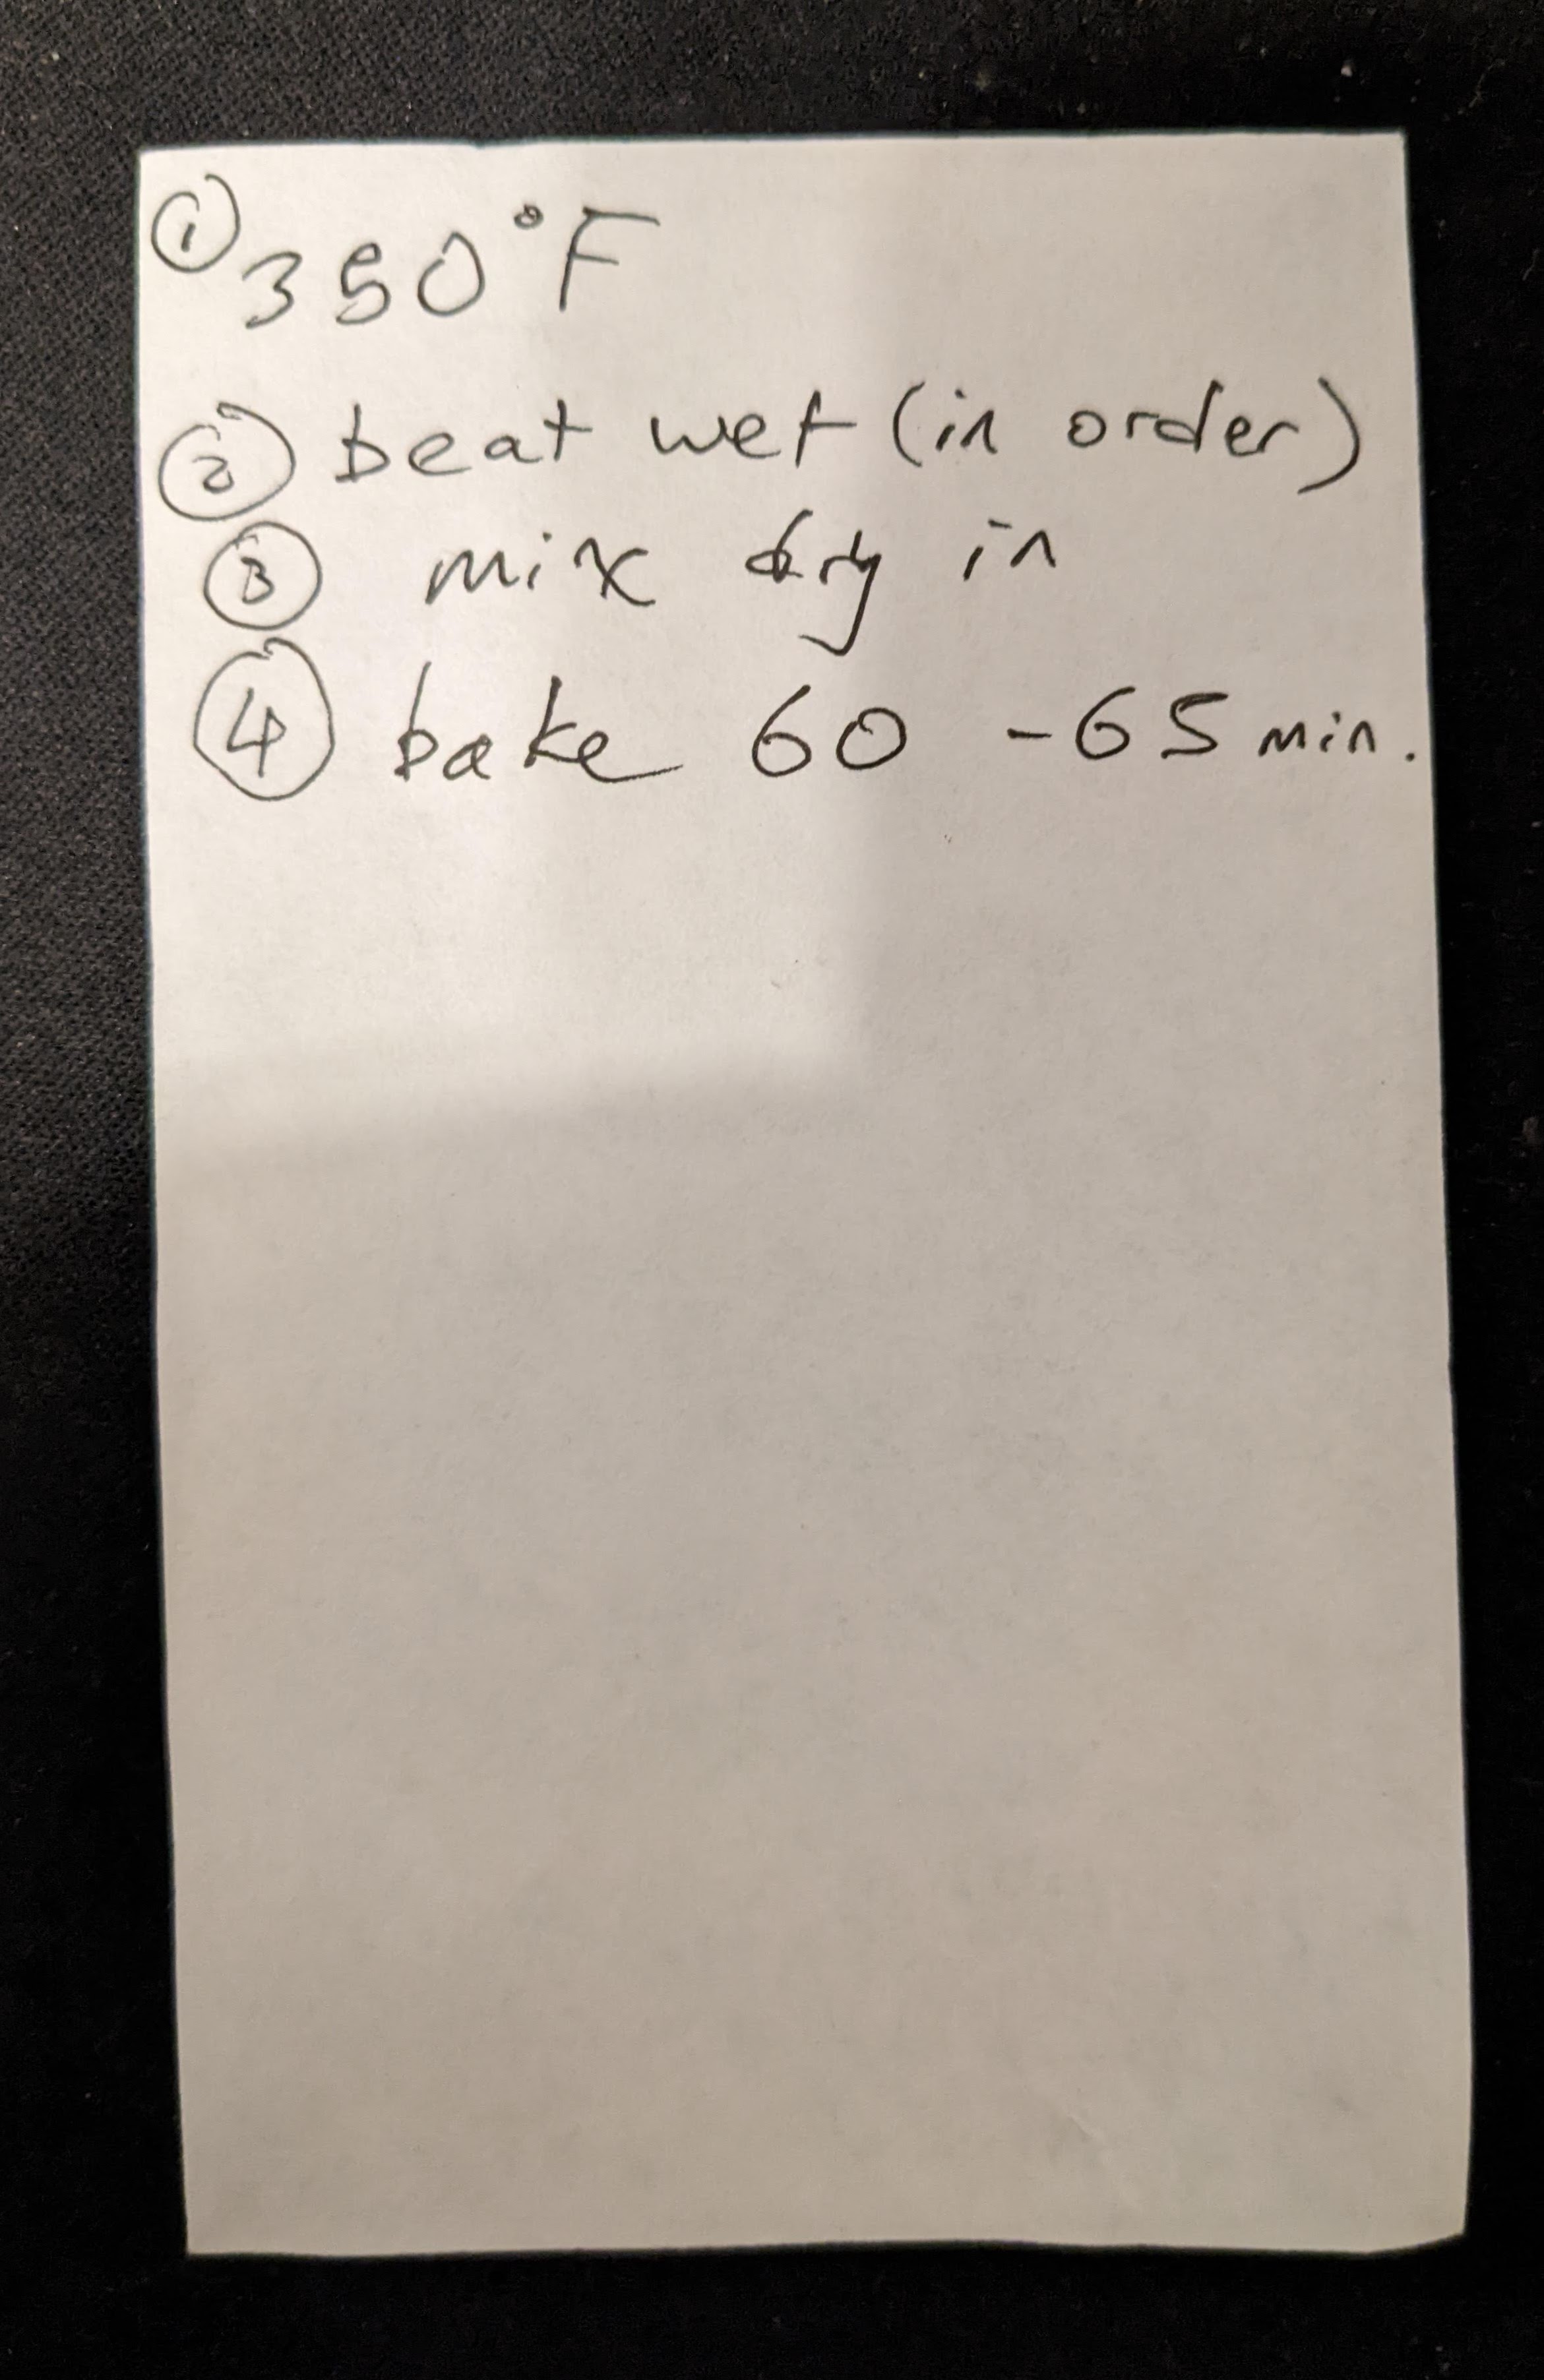 ① 350°F
② beat wet (in order)
③ mix dry in
④ bake 60 -65 min.